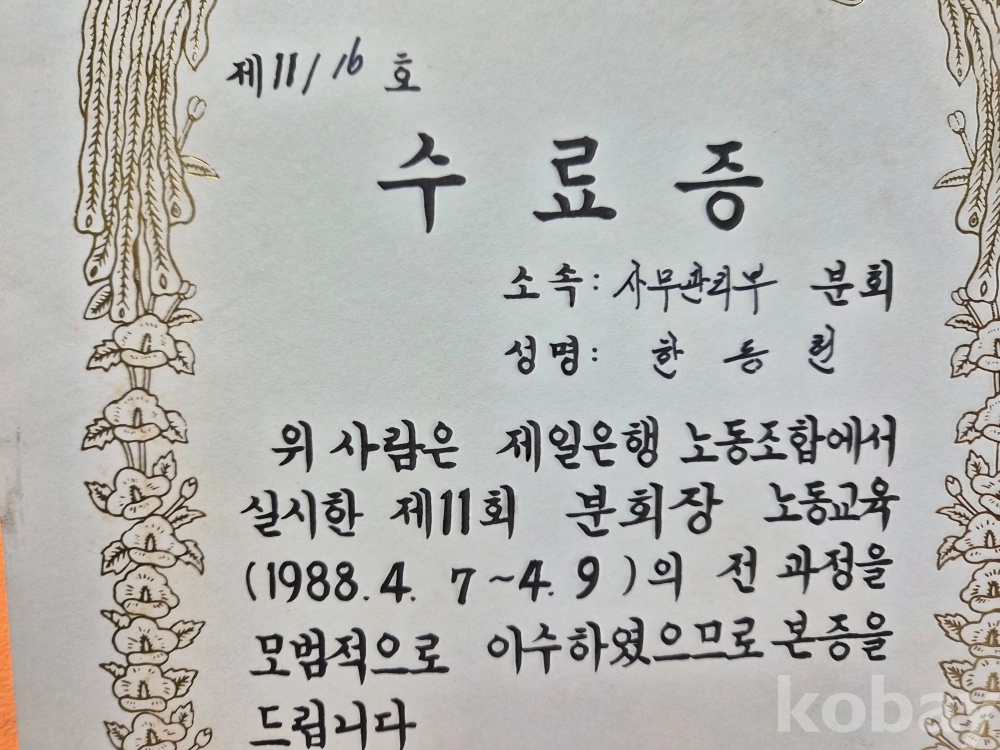 제11/16 호
수료증
소속: 사무관리부 분회
성명: 한동헌
위 사람은 제일은행 노동조합에서
실시한 제11회 분회장 노동교육
(1988.4. 7~4. 9)의 전 과정을
모범적으로 이수하였으므로 본증을
드립니다